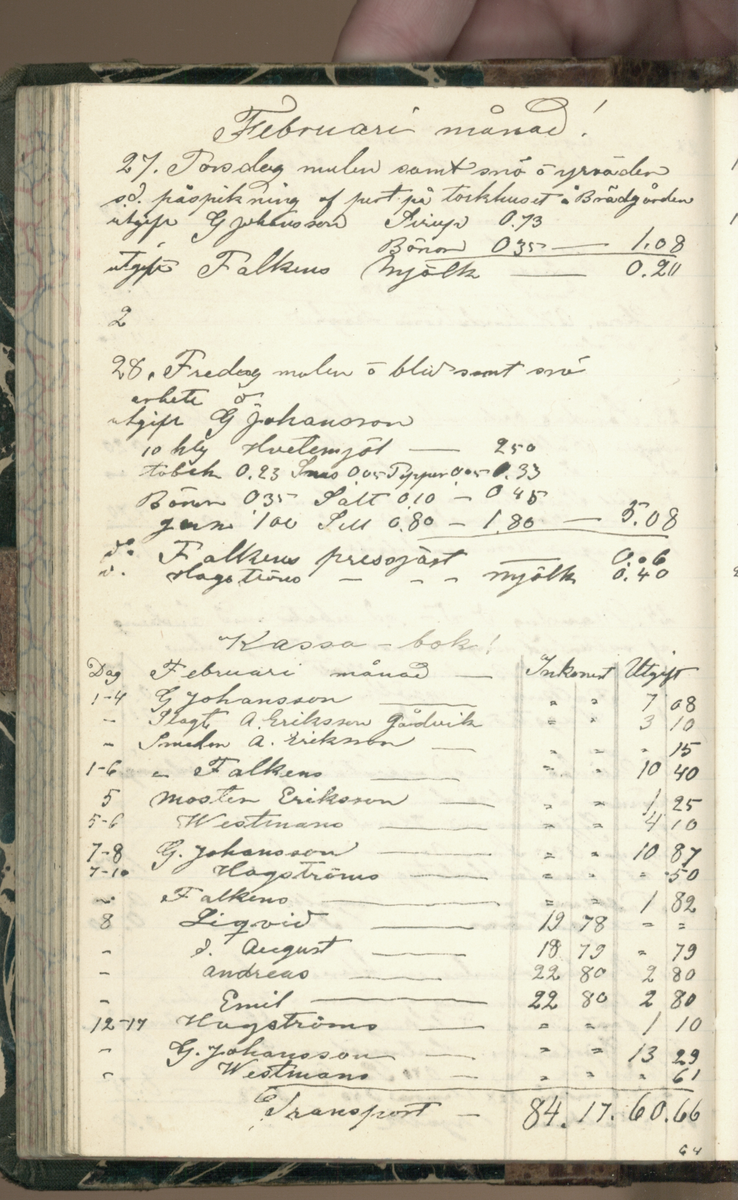 Februari månad!
27. Torsdag mulen samt snö ö yrväder
s.d. påspikning af port på torkhuset å Brädgården
utgift G Johansson Sirup 0.73
Bönor 0 35 — 1.08
utgift Falkens Mjölk — 0.20
2
28. Fredag mulen ö blid samt snö
arbete ö
utgift G Johansson
10 kg Hvetemjöl — 2 50
tobak 0.23 Snus 0 05 Peppar 0 05 0.33
Bönor 0 35 Salt 0 10 — 0 45
1 00 Sill 0.80 — 1.80 — 5.08
do Falkens pressjäst — 0.06
d. Hagströms — - - Mjölk 0.40
Kassa-bok!
Dag Februari månad — Inkomst Utgift
1-4 G Johansson — " " 7 08
" Slagt A. Eriksson Gådvik " " 3 10
" Smeden A. Eriksson — " " " 15
1-6 " Falkens — " " 10 40
5 Mosten Eriksson — " " 1 25
5-6 Westmans — " " 4 10
7-8 G. Johansson — " " 10 87
7-10 Hagströms — " " " 50
" Falkens — " " 1 82
8 Liqvid — 19 78 " "
" S. August — 18 79 " 79
" Andreas — 22 80 2 80
" Emil — 22 80 2 80
12-17 Hagströms — " " 1 10
" G. Johansson — " " 13 29
" Westmans — " " " 61
Transport — 84. 17. 60. 66